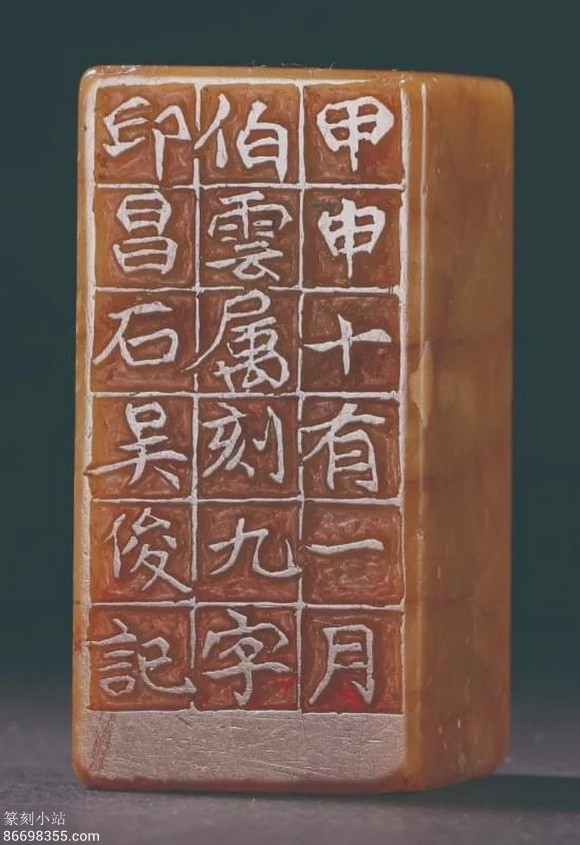 甲申十有一月
伯雲属刻九字
印昌石吴俊記
篆刻小站
86698355.com